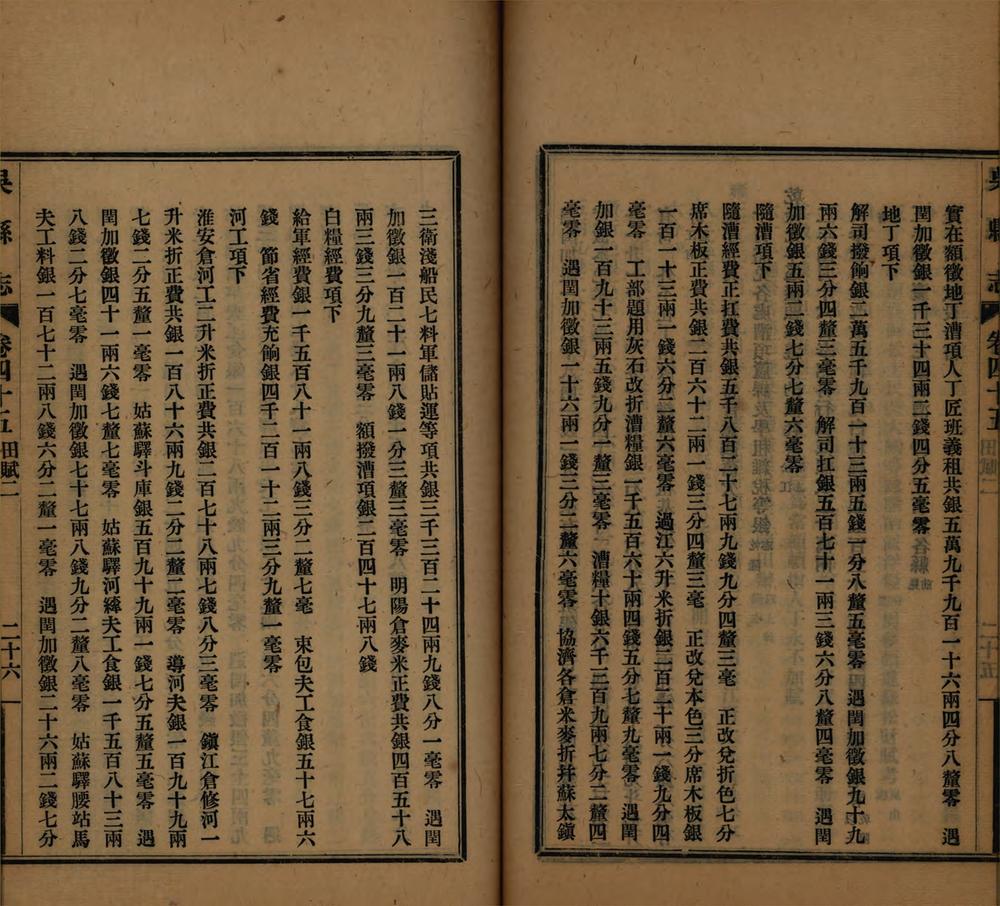 吳縣志 卷四十五 田賦二 二十五
實在額徵地丁漕項人丁匠班義租共銀五萬九千九百一十六兩四分八釐零 遇
閏加徵銀一千三十四兩二錢四分五毫零
地丁項下
解司撥餉銀二萬五千九百一十三兩五錢一分八釐五毫零 遇閏加徵銀九十九
兩六錢三分四釐三毫零 解司扛銀五百七十一兩三錢六分八釐四毫零 遇閏
加徵銀五兩二錢七分七釐六毫零
隨漕項下
隨漕經費正扛費共銀五千八百二十七兩九錢九分四釐三毫 正改兌折色七分
席木板正費共銀二百六十二兩一錢三分四釐三毫 正改兌本色三分席木板銀
一百一十三兩一錢六分二釐六毫零 過江六升米折銀二百二十兩一錢九分四
毫零 工部題用灰石改折漕糧銀一千五百六十兩四錢五分七釐九毫零 遇閏
加銀一百九十三兩五錢九分一釐三毫零 漕糧十銀六千三百九兩七分二釐四
毫零 遇閏加徵銀一十六兩一錢三分二釐六毫零 協濟各倉米麥折幷蘇太鎮
三衛淺船民七料軍儲貼運等項共銀三千三百二十四兩九錢八分一毫零 遇閏
加徵銀一百二十一兩八錢一分三釐三毫零 明陽倉麥米正費共銀四百五十八
兩三錢三分九釐三毫零 額撥漕項銀二百四十七兩八錢
白糧經費項下
給軍經費銀一千五百八十一兩八錢三分二釐七毫 束包夫工食銀五十七兩六
錢 節省經費充餉銀四千二百一十二兩三分九釐一毫零
河工項下
淮安倉河工二升米折正費共銀二百七十八兩七錢八分三毫零 鎭江倉修河一
升米折正費共銀一百八十六兩九錢二分二釐二毫零 導河夫銀一百九十九兩
七錢二分五釐一毫零 姑蘇驛斗庫銀五百九十九兩一錢七分五釐五毫零 遇
閏加徵銀四十一兩六錢七釐七毫零 姑蘇驛河縴夫工食銀一千五百八十三兩
八錢二分七毫零 遇閏加徵銀七十七兩八錢九分二釐八毫零 姑蘇驛腰站馬
夫工料銀一百七十二兩八錢六分二釐一毫零 遇閏加徵銀二十六兩二錢七分
吳縣志 卷四十五 田賦二 二十六